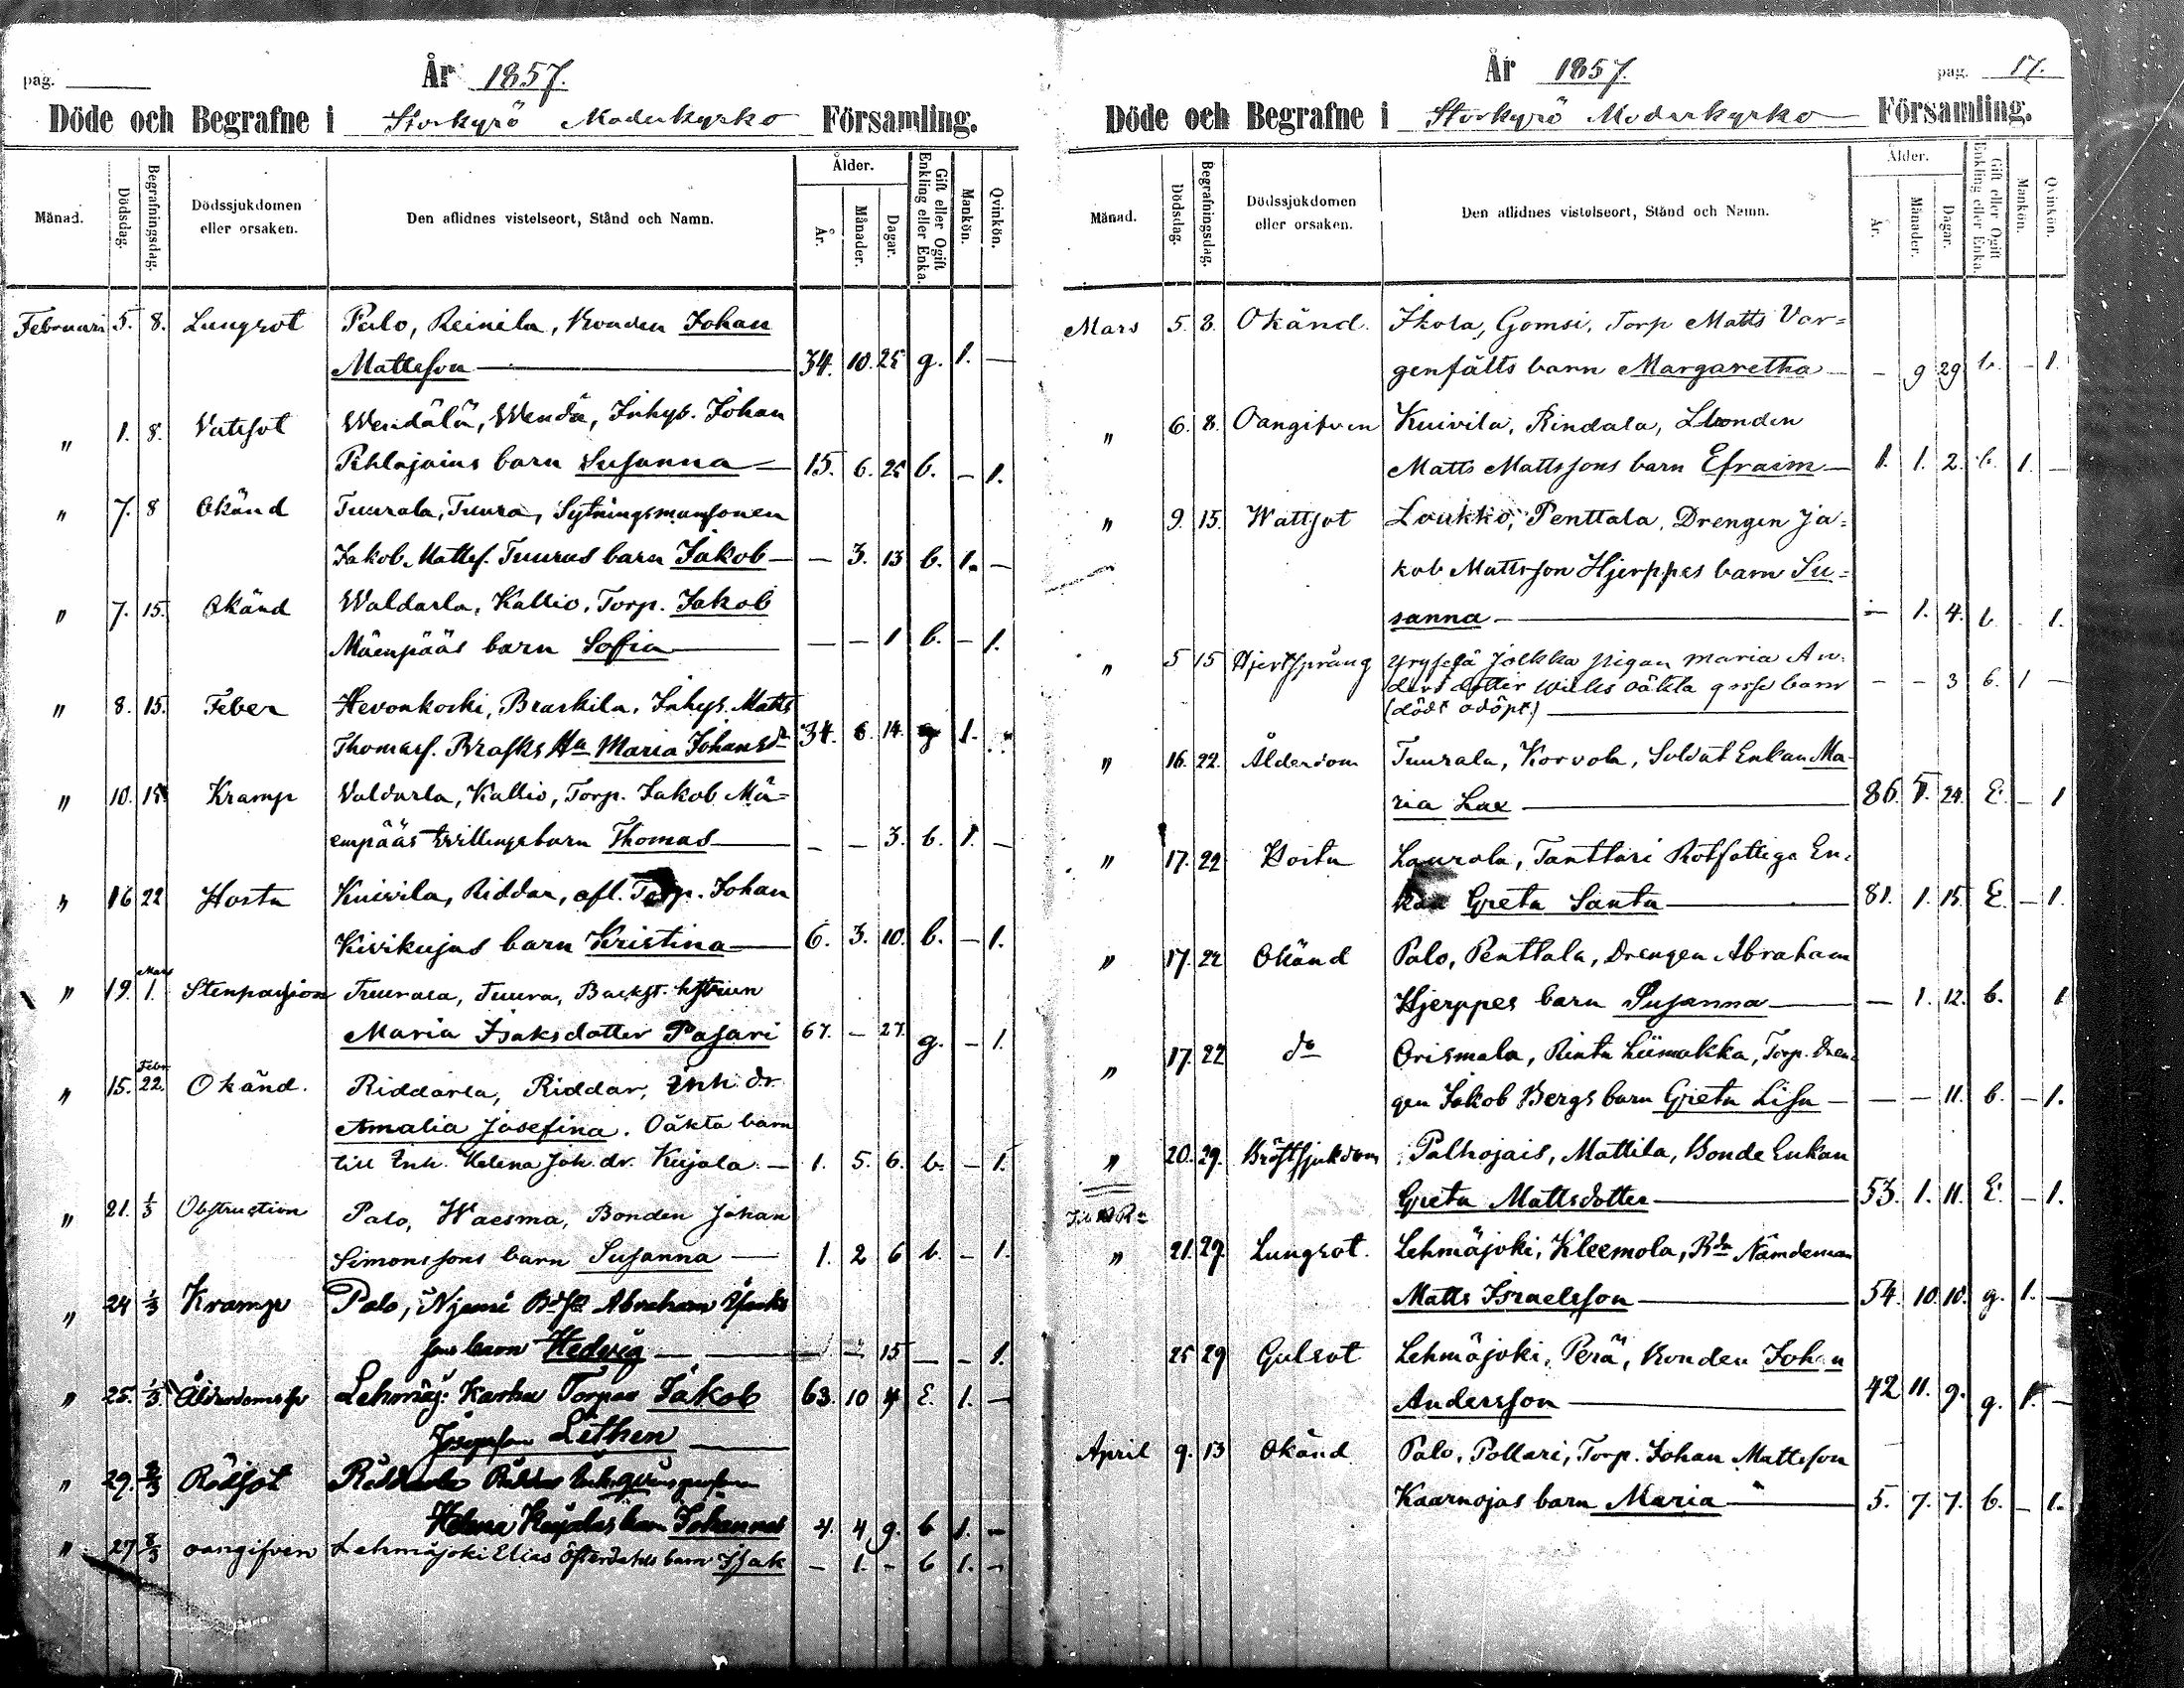 pag.
År 1857.
Döde och Begrafne i Storkyrö Moderkyrko Församling.
Månad. Dödsdag. Begrafningsdag. Dödssjukdomen eller orsaken. Den aflidnes vistelseort, Stånd och Namn. Ålder. År. Månader. Dagar. Gift eller Ogift Enkling eller Enka. Mankön. Qvinkön.
Februari 5. 8. Lungsot Palo, Reinila, Bonden Johan
Mattsson — 34. 10. 25 g. 1. —
" 1. 8. Vatsot Wendälä, Wendä, Inhys. Johan
Pihlajains barn Susanna — 15. 6. 25 b. — 1.
" 7. 8 Okänd Tuurala, Tuura, Sytningsmansonen
Jakob Matts. Tuuras barn Jakob — — 3. 13 b. 1. —
" 7. 15. Okänd Waldarla, Kallio, Torp. Jakob
Mäenpääs barn Sofia — — — 1 b. — 1.
" 8. 15. Feber Hevonkoski, Braskila, Inhys. Matts
Thomass. Brasks Hu Maria Johansdr 34. 6. 14. g 1.
" 10. 15 Kramp Valdarla, Kallio, Torp. Jakob Mä=
enpääs tvillingebarn Thomas — — — 3. b. 1. —
" 16 22 Hosta Kuivila, Riddar, afl. Torp. Johan
Kivikujas barn Kristina — 6. 3. 10. b. — 1.
Mars
" 19. 1. Stenpassion Tuurala, Tuura, Backst. hustrun
Maria Isaksdotter Pasari 67. — 27. g. — 1.
Febr
" 15. 22. Okänd. Riddarla, Riddar, Inh. dr.
Amalia Josefina. Oäkta barn
till Inh. Helena Joh. dr. Kujala. — 1. 5. 6. b. — 1.
" 21. 1/3 Obstruction Palo, Waesma, Bonden Johan
Simonssons barn Susanna — 1. 2 6 b. — 1.
" 24 1/3 Kramp Palo, Njemi Abraham Isaks
sons barn Hedvig — — 15 — — 1.
" 25. 1/3 Ålderdoms Lehmäj: Karhu Torpar Jakob 63. 10 4 E. 1. —
Josepsson Lethen —
" 29. 8/3 Rödsot
Helena Kujalas barn Johannes 4. 4 9. b 1. —
" 27 8/3 oangifven Lehmäjoki Elias Österdahls barn Isak — 1. — b 1. —
År 1857.
pag. 17.
Döde och Begrafne i Storkyrö Moderkyrko Församling.
Månad. Dödsdag. Begrafningsdag. Dödssjukdomen eller orsaken. Den aflidnes vistelseort, Stånd och Namn. Ålder. År. Månader. Dagar. Gift eller Ogift Enkling eller Enka. Mankön. Qvinkön.
Mars 5. 8. Okänd. Ikola, Gomsi, Torp Matts Var=
genfälts barn Margaretha — — 9 29 b. — 1.
" 6. 8. Oangifven Kuivila, Rindala, Bonden
Matts Mattssons barn Efraim — 1. 1. 2. b. 1. —
" 9. 15. Wattsot Loukko, Penttala, Drengen Ja=
kob Mattsson Hjerppes barn Su=
sanna — — 1. 4. b. 1.
" 5 15 Hjertsprång Yrysilä Jolkka pigan Maria An=
ders dotter Wills oäkta gosse barn — — 3 b. 1 —
(dödt odöpt.) —
" 16. 22. Ålderdom Tuurala, Korvola, Soldat Enkan Ma-
ria Lax — 86. 1. 24. E. — 1
" 17. 22 Hosta Laurola, Tanttari Rotfattiga En=
kan Greta Santa — 81. 1. 15. E. — 1.
" 17. 22 Okänd Palo, Penttala, Drengen Abraham
Hjerppes barn Susanna — — 1. 12. b. 1
" 17. 22 do Orismala, Rinta Liimakka, Torp. Dren=
gen Jakob Bergs barn Greta Lisa — — — 11. b. — 1.
" 20. 29. Bröstsjukdom Palhojais, Mattila, Bonde Enkan
Greta Mattsdotter — 53. 1. 11. E. — 1.
" 21. 29. Lungsot. Lehmäjoki, Kleemola, Bdn Nämdeman
Matts Israelsson — 54. 10. 10. g. 1. —
25 29 Gulsot Lehmäjoki, Perä, Bonden Johan
Andersson — 42 11. 9. g. 1. —
April 9. 13 Okänd Palo, Pollari, Torp. Johan Mattsson
Kaarnojas barn Maria — 5. 7. 7. b. — 1.